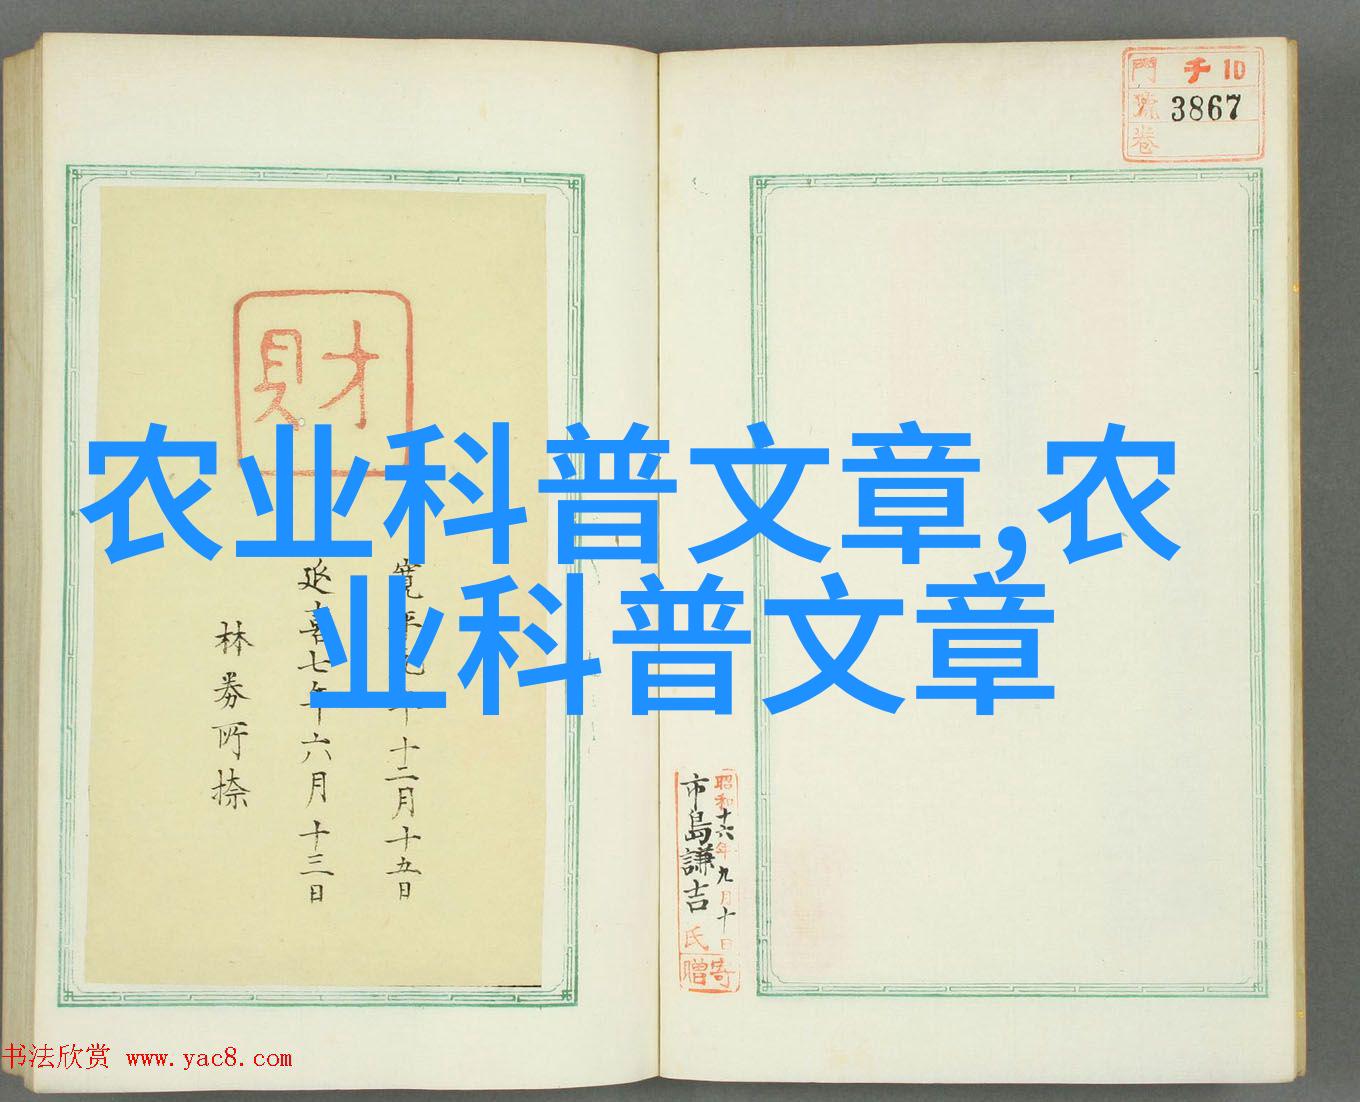 農业科普文章,农
业科普文章
門 千10
號 3867
卷
財
寛平元年十二月十五日
延喜七年六月十三日
林券所捺
昭和十六年九月十日
市島謙吉氏
寄贈
书法欣赏 www.yac8.com